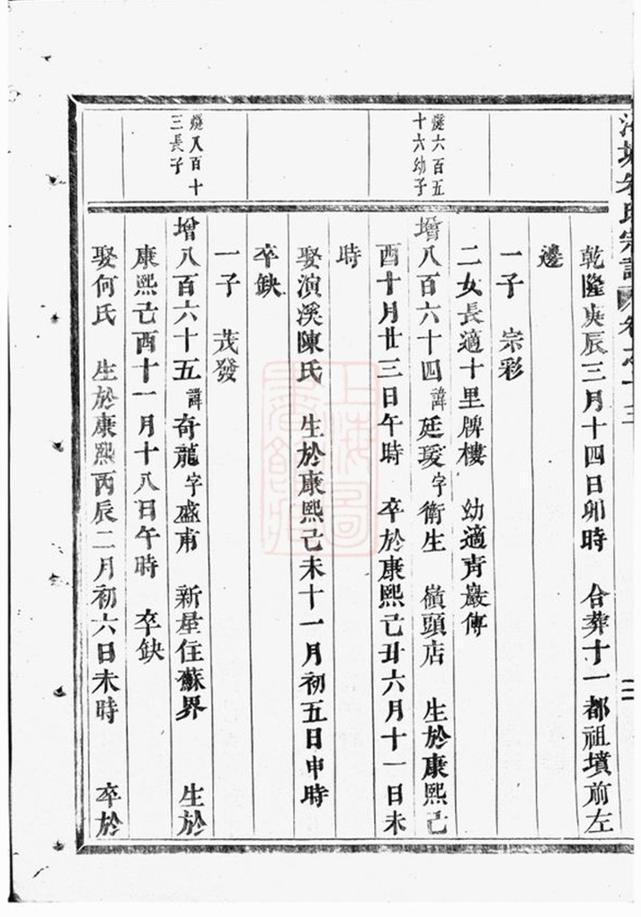 朱氏宗譜 卷之十三
二
乾隆庚辰三月十四日卯時 合葬十一都祖墳前左
邊
一子 宗彩
二女長適十里牌樓 幼適青巖傅
燧六百五
十六幼子
增八百六十四諱廷瑷字衛生 嶺頭店 生於康熙己
酉十月廿三日午時 卒於康熙己丑六月十一日未
時
娶演溪陳氏 生於康熙己未十一月初五日申時
卒缺
一子 茂發
燧八百十
三長子
增八百六十五諱奇龍字盛甫 新星住蘇界 生於
康熙己酉十一月十八日午時 卒缺
娶何氏 生於康熙丙辰二月初六日未時 卒於
上海圖
書館藏